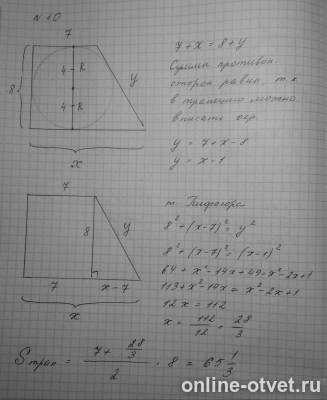 N 10
7
4 R
8
4 R
y
x
7 + x = 8 + y
Суммы противоп.
сторон равны т.к
в трапецию можно
вписать окр.
y = 7 + x - 8
y = x - 1
7
8
y
7
x - 7
x
т. Пифагора
8² + (x-7)² = y²
8² + (x-7)² = (x-1)²
64 + x² - 14x + 49 = x² - 2x + 1
113 + x² - 14x = x² - 2x + 1
12x = 112
x = 112/12 = 28/3
Sтрап = (7 + 28/3)/2 · 8 = 65 1/3
online-otvet.ru